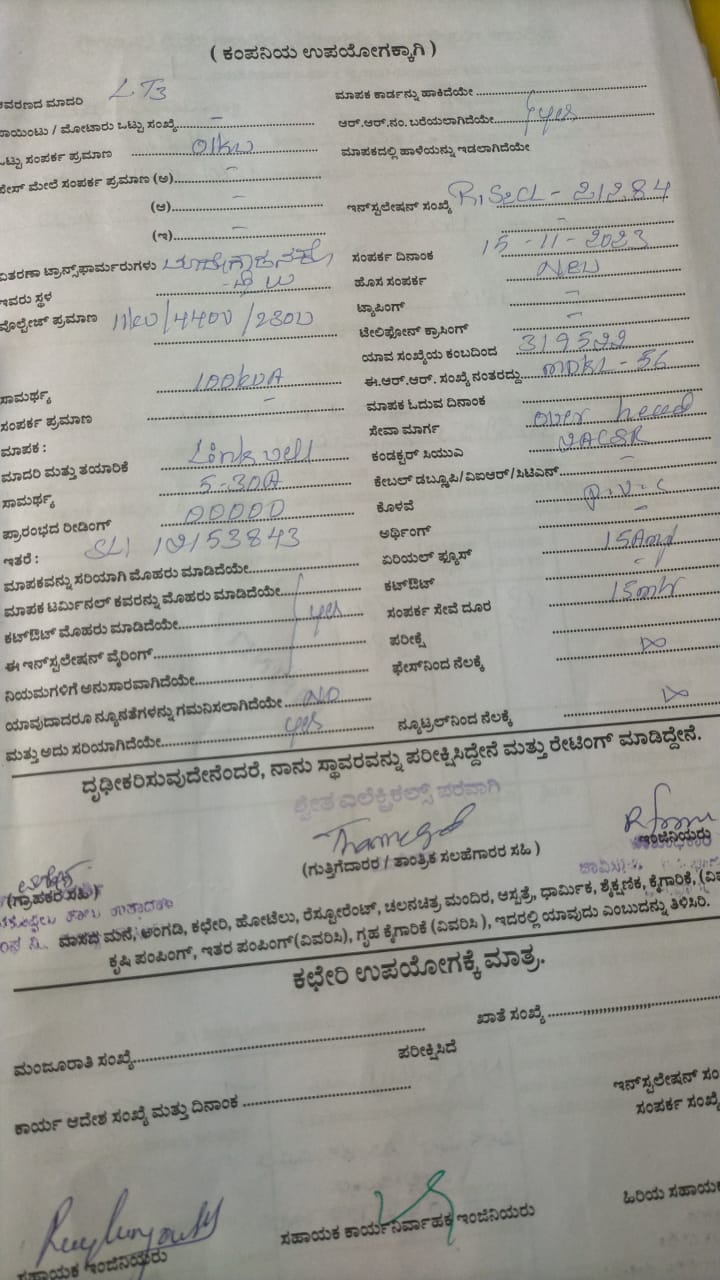 ( ಕಂಪನಿಯ ಉಪಯೋಗಕ್ಕಾಗಿ )
ಆವರಣದ ಮಾದರಿ LT3
ಪಾಯಿಂಟು / ಮೋಟಾರು ಒಟ್ಟು ಸಂಖ್ಯೆ -
ಒಟ್ಟು ಸಂಪರ್ಕ ಪ್ರಮಾಣ 01kw
ಫೇಸ್ ಮೇಲೆ ಸಂಪರ್ಕ ಪ್ರಮಾಣ (ಅ) -
(ಆ) -
(ಇ) -
ವಿತರಣಾ ಟ್ರಾನ್ಸ್‌ಫಾರ್ಮರುಗಳು
ಇವರು ಸ್ಥಳ
ವೊಲ್ಟೇಜ್ ಪ್ರಮಾಣ 11kv/440v/230v
ಸಾಮರ್ಥ್ಯ 100kVA
ಸಂಪರ್ಕ ಪ್ರಮಾಣ -
ಮಾಪಕ :
ಮಾದರಿ ಮತ್ತು ತಯಾರಿಕೆ Linkwell
ಸಾಮರ್ಥ್ಯ 5-30A
ಪ್ರಾರಂಭದ ರೀಡಿಂಗ್ 00000
ಇತರೆ : SL1 19153843
ಮಾಪಕವನ್ನು ಸರಿಯಾಗಿ ಮೊಹರು ಮಾಡಿದೆಯೇ
ಮಾಪಕ ಟರ್ಮಿನಲ್ ಕವರನ್ನು ಮೊಹರು ಮಾಡಿದೆಯೇ
ಕಟ್‌ಔಟ್ ಮೊಹರು ಮಾಡಿದೆಯೇ yes
ಈ ಇನ್‌ಸ್ಟಲೇಷನ್ ವೈರಿಂಗ್
ನಿಯಮಗಳಿಗೆ ಅನುಸಾರವಾಗಿದೆಯೇ
ಯಾವುದಾದರೂ ನ್ಯೂನತೆಗಳನ್ನು ಗಮನಿಸಲಾಗಿದೆಯೇ NO
ಮತ್ತು ಅದು ಸರಿಯಾಗಿದೆಯೇ yes
ಮಾಪಕ ಕಾರ್ಡನ್ನು ಹಾಕಿದೆಯೇ
ಆರ್.ಆರ್.ನಂ. ಬರೆಯಲಾಗಿದೆಯೇ yes
ಮಾಪಕದಲ್ಲಿ ಹಾಳೆಯನ್ನು ಇಡಲಾಗಿದೆಯೇ
ಇನ್‌ಸ್ಟಲೇಷನ್ ಸಂಖ್ಯೆ - 21284
-
ಸಂಪರ್ಕ ದಿನಾಂಕ 15-11-2023
ಹೊಸ ಸಂಪರ್ಕ New
ಟ್ಯಾಪಿಂಗ್ -
ಟೆಲಿಫೋನ್ ಕ್ರಾಸಿಂಗ್ -
ಯಾವ ಸಂಖ್ಯೆಯ ಕಂಬದಿಂದ 319522
ಈ.ಆರ್.ಆರ್. ಸಂಖ್ಯೆ ನಂತರದ್ದು MDKL-56
ಮಾಪಕ ಓದುವ ದಿನಾಂಕ
ಸೇವಾ ಮಾರ್ಗ over head
ಕಂಡಕ್ಟರ್ ಸಿಯುಎ
ಕೇಬಲ್ ಡಬ್ಲೂಪಿ/ವಿಐಆರ್/ಸಿಟಿಎನ್ -
ಕೊಳವೆ P.V.C
ಅರ್ಥಿಂಗ್ -
ಏರಿಯಲ್ ಫ್ಯೂಸ್ 15Amp
ಕಟ್‌ಔಟ್ -
ಸಂಪರ್ಕ ಸೇವೆ ದೂರ 15mtr
ಪರೀಕ್ಷೆ
ಫೇಸ್‌ನಿಂದ ನೆಲಕ್ಕೆ ∞
ನ್ಯೂಟ್ರಲ್‌ನಿಂದ ನೆಲಕ್ಕೆ ∞
ದೃಢೀಕರಿಸುವುದೇನೆಂದರೆ, ನಾನು ಸ್ಥಾವರವನ್ನು ಪರೀಕ್ಷಿಸಿದ್ದೇನೆ ಮತ್ತು ರೇಟಿಂಗ್ ಮಾಡಿದ್ದೇನೆ.
ಶ್ವೇತ ಎಲೆಕ್ಟ್ರಿಕಲ್ಸ್ ಪರವಾಗಿ
(ಗ್ರಾಹಕರ ಸಹಿ)
(ಗುತ್ತಿಗೆದಾರರ / ತಾಂತ್ರಿಕ ಸಲಹೆಗಾರರ ಸಹಿ )
ಇಂಜಿನಿಯರು
ವಾಸದ ಮನೆ, ಅಂಗಡಿ, ಕಛೇರಿ, ಹೋಟೆಲು, ರೆಸ್ಟೋರೆಂಟ್, ಚಲನಚಿತ್ರ ಮಂದಿರ, ಆಸ್ಪತ್ರೆ, ಧಾರ್ಮಿಕ, ಶೈಕ್ಷಣಿಕ, ಕೈಗಾರಿಕೆ,
ಕೃಷಿ ಪಂಪಿಂಗ್, ಇತರ ಪಂಪಿಂಗ್(ವಿವರಿಸಿ), ಗೃಹ ಕೈಗಾರಿಕೆ (ವಿವರಿಸಿ ), ಇದರಲ್ಲಿ ಯಾವುದು ಎಂಬುದನ್ನು ತಿಳಿಸಿರಿ.
ಕಛೇರಿ ಉಪಯೋಗಕ್ಕೆ ಮಾತ್ರ.
ಮಂಜೂರಾತಿ ಸಂಖ್ಯೆ
ಖಾತೆ ಸಂಖ್ಯೆ
ಪರೀಕ್ಷಿಸಿದೆ
ಕಾರ್ಯ ಆದೇಶ ಸಂಖ್ಯೆ ಮತ್ತು ದಿನಾಂಕ
ಇನ್‌ಸ್ಟಲೇಷನ್ ಸಂ
ಸಂಪರ್ಕ ಸಂಖ್ಯೆ
ಸಹಾಯಕ ಇಂಜಿನಿಯರು
ಸಹಾಯಕ ಕಾರ್ಯನಿರ್ವಾಹಕ ಇಂಜಿನಿಯರು
ಹಿರಿಯ ಸಹಾಯ